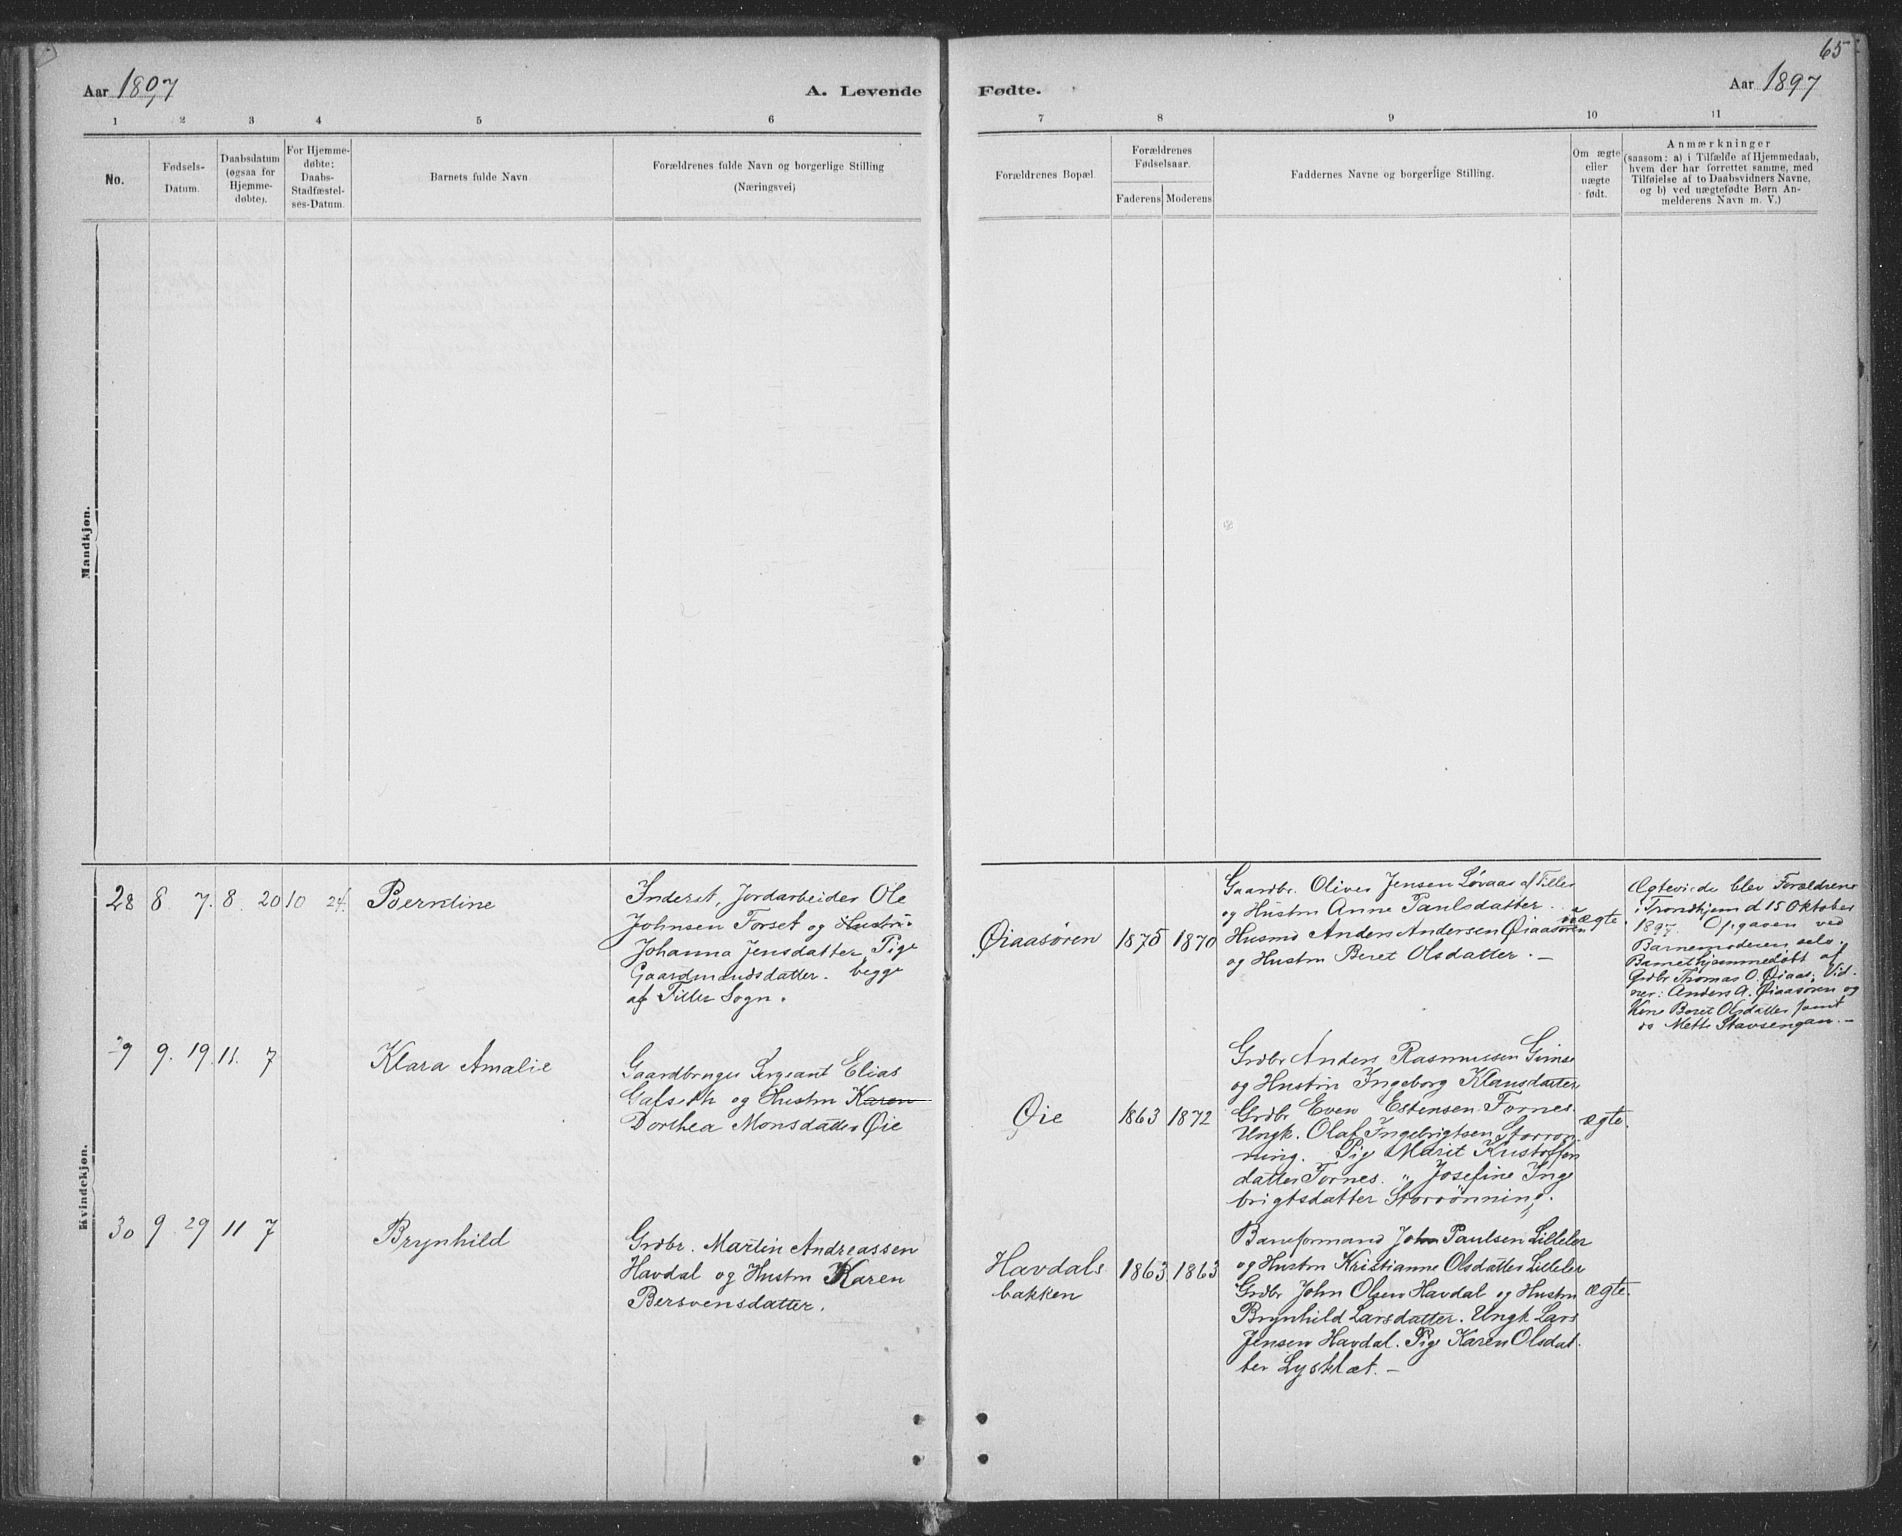 65
Aar 1897
A. Levende
Fødte.
Aar 1897
1 2 3 4 5 6
7 8 9 10 11
No.
Fødsels-
Datum.
Daabsdatum
(ogsaa for
Hjemme-
døbte).
For Hjemme-
døbte:
Daabs-
Stadfæstel-
ses-Datum.
Barnets fulde Navn
Forældrenes fulde Navn og borgerlige Stilling
(Næringsvei)
Forældrenes Bopæl.
Forældrenes
Fødselsaar.
Faderens Moderens
Faddernes Navne og borgerlige Stilling.
Om ægte
eller
uægte
født.
Anmærkninger
(saasom: a) i Tilfælde af Hjemmedaab,
hvem der har forrettet samme, med
Tilføielse af to Daabsvidners Navne,
og b) ved uægtefødte Børn An-
melderens Navn m. V.)
Mandkjøn.
Kvindekjøn.
28 8. 7. 8. 20 10 24.
Berntine
Inderst, Jordarbeider Ole
Johnsen Forset og Hustru
Johanna Jensdatter, Pige
Gaardmandsdatter. begge
af Tiller Sogn.
Øiaasøren
1875 1870
Gaardbr. Oliver Jensen Løvaas af Tiller
og Hustru Anne Paulsdatter.
Husmd Anders Andersen Øiaasøren
og Hustru Beret Olsdatter. —
uægte.
Ægteviede blev Forældrene
i Trondhjem d 15 Oktober
1897. Opgaven ved
Barnemoderen selv.
Barnet hjemmedøbt af
Grdbr Thomas O. Øiaas; Vid-
ner: Anders A. Øiaasøren og
Kone Beret Olsdatter samt
Mette Stavsengan. —
29 9. 19. 11. 7
Klara Amalie
Gaardbruger Sergeant Elias
Galseth og Hustru Karen
Dorthea Monsdatter Øie
Øie
1863 1872
Grdbr Anders Rasmussen Gimse
og Hustru Ingeborg Klausdatter
Grdbr Even Estensen Fornes.
Ungk. Olaf Ingebrigtsen Storrøn-
ning. Pige Marit Kristoffer
datter Fornes. " Josefine Inge
brigtsdatter Storrønning.
ægte.
30 9. 29 11 7
Brynhild
Grdbr. Martin Andreassen
Havdal og Hustru Karen
Bersvensdatter.
Havdals
bakken
1863 1863
Baneformand John Paulsen Lilleler
og Hustru Kristianne Olsdatter Lilleler
Grdbr John Olsen Havdal og Hustru
Brynhild Larsdatter. Ungk Lars
Jensen Havdal. Pige Karen Olsdat-
ter Lysklæt. —
ægte.